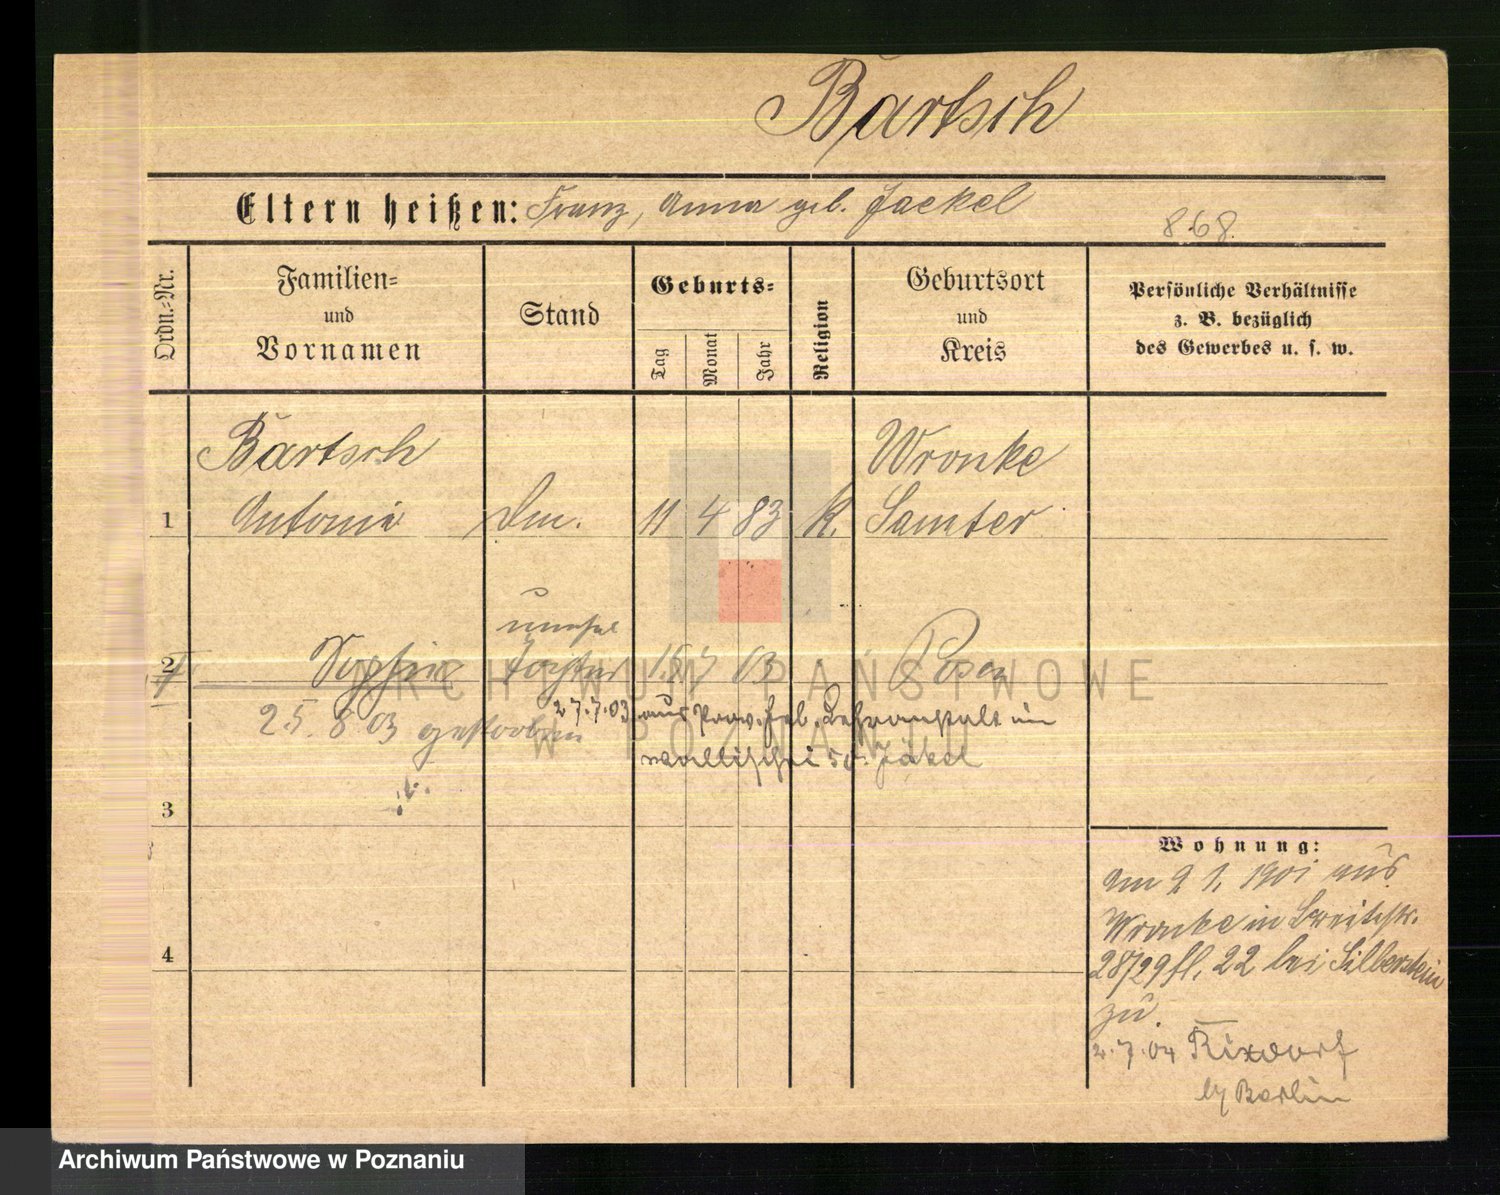 Bartsch
Eltern heißen: Franz, Anna geb. Jaekel
868.
Ordn.-Nr.
Familien-
und
Vornamen
Stand
Geburts-
Tag
Monat
Jahr
Religion
Geburtsort
und
Kreis
Persönliche Verhältnisse
z. B. bezüglich
des Gewerbes u. s. w.
Bartsch
Wronke
1 Antonie Dm. 11 4 83 K. Samter
unehel
2 Sophie Tochter 15 7 03 Posen
25. 8 03 gestorben
27.7.03 aus Prov. Heb. Lehranstalt in
Wallischei 50. Jäkel
3
4
Wohnung:
Am 2 1. 1901 aus
Wronke in Breitestr.
28/29 fl. 22 bei Silberstein
zu.
2.7.04 Rixdorf
b/ Berlin
ARCHIWUM PAŃSTWOWE
W POZNANIU
Archiwum Państwowe w Poznaniu